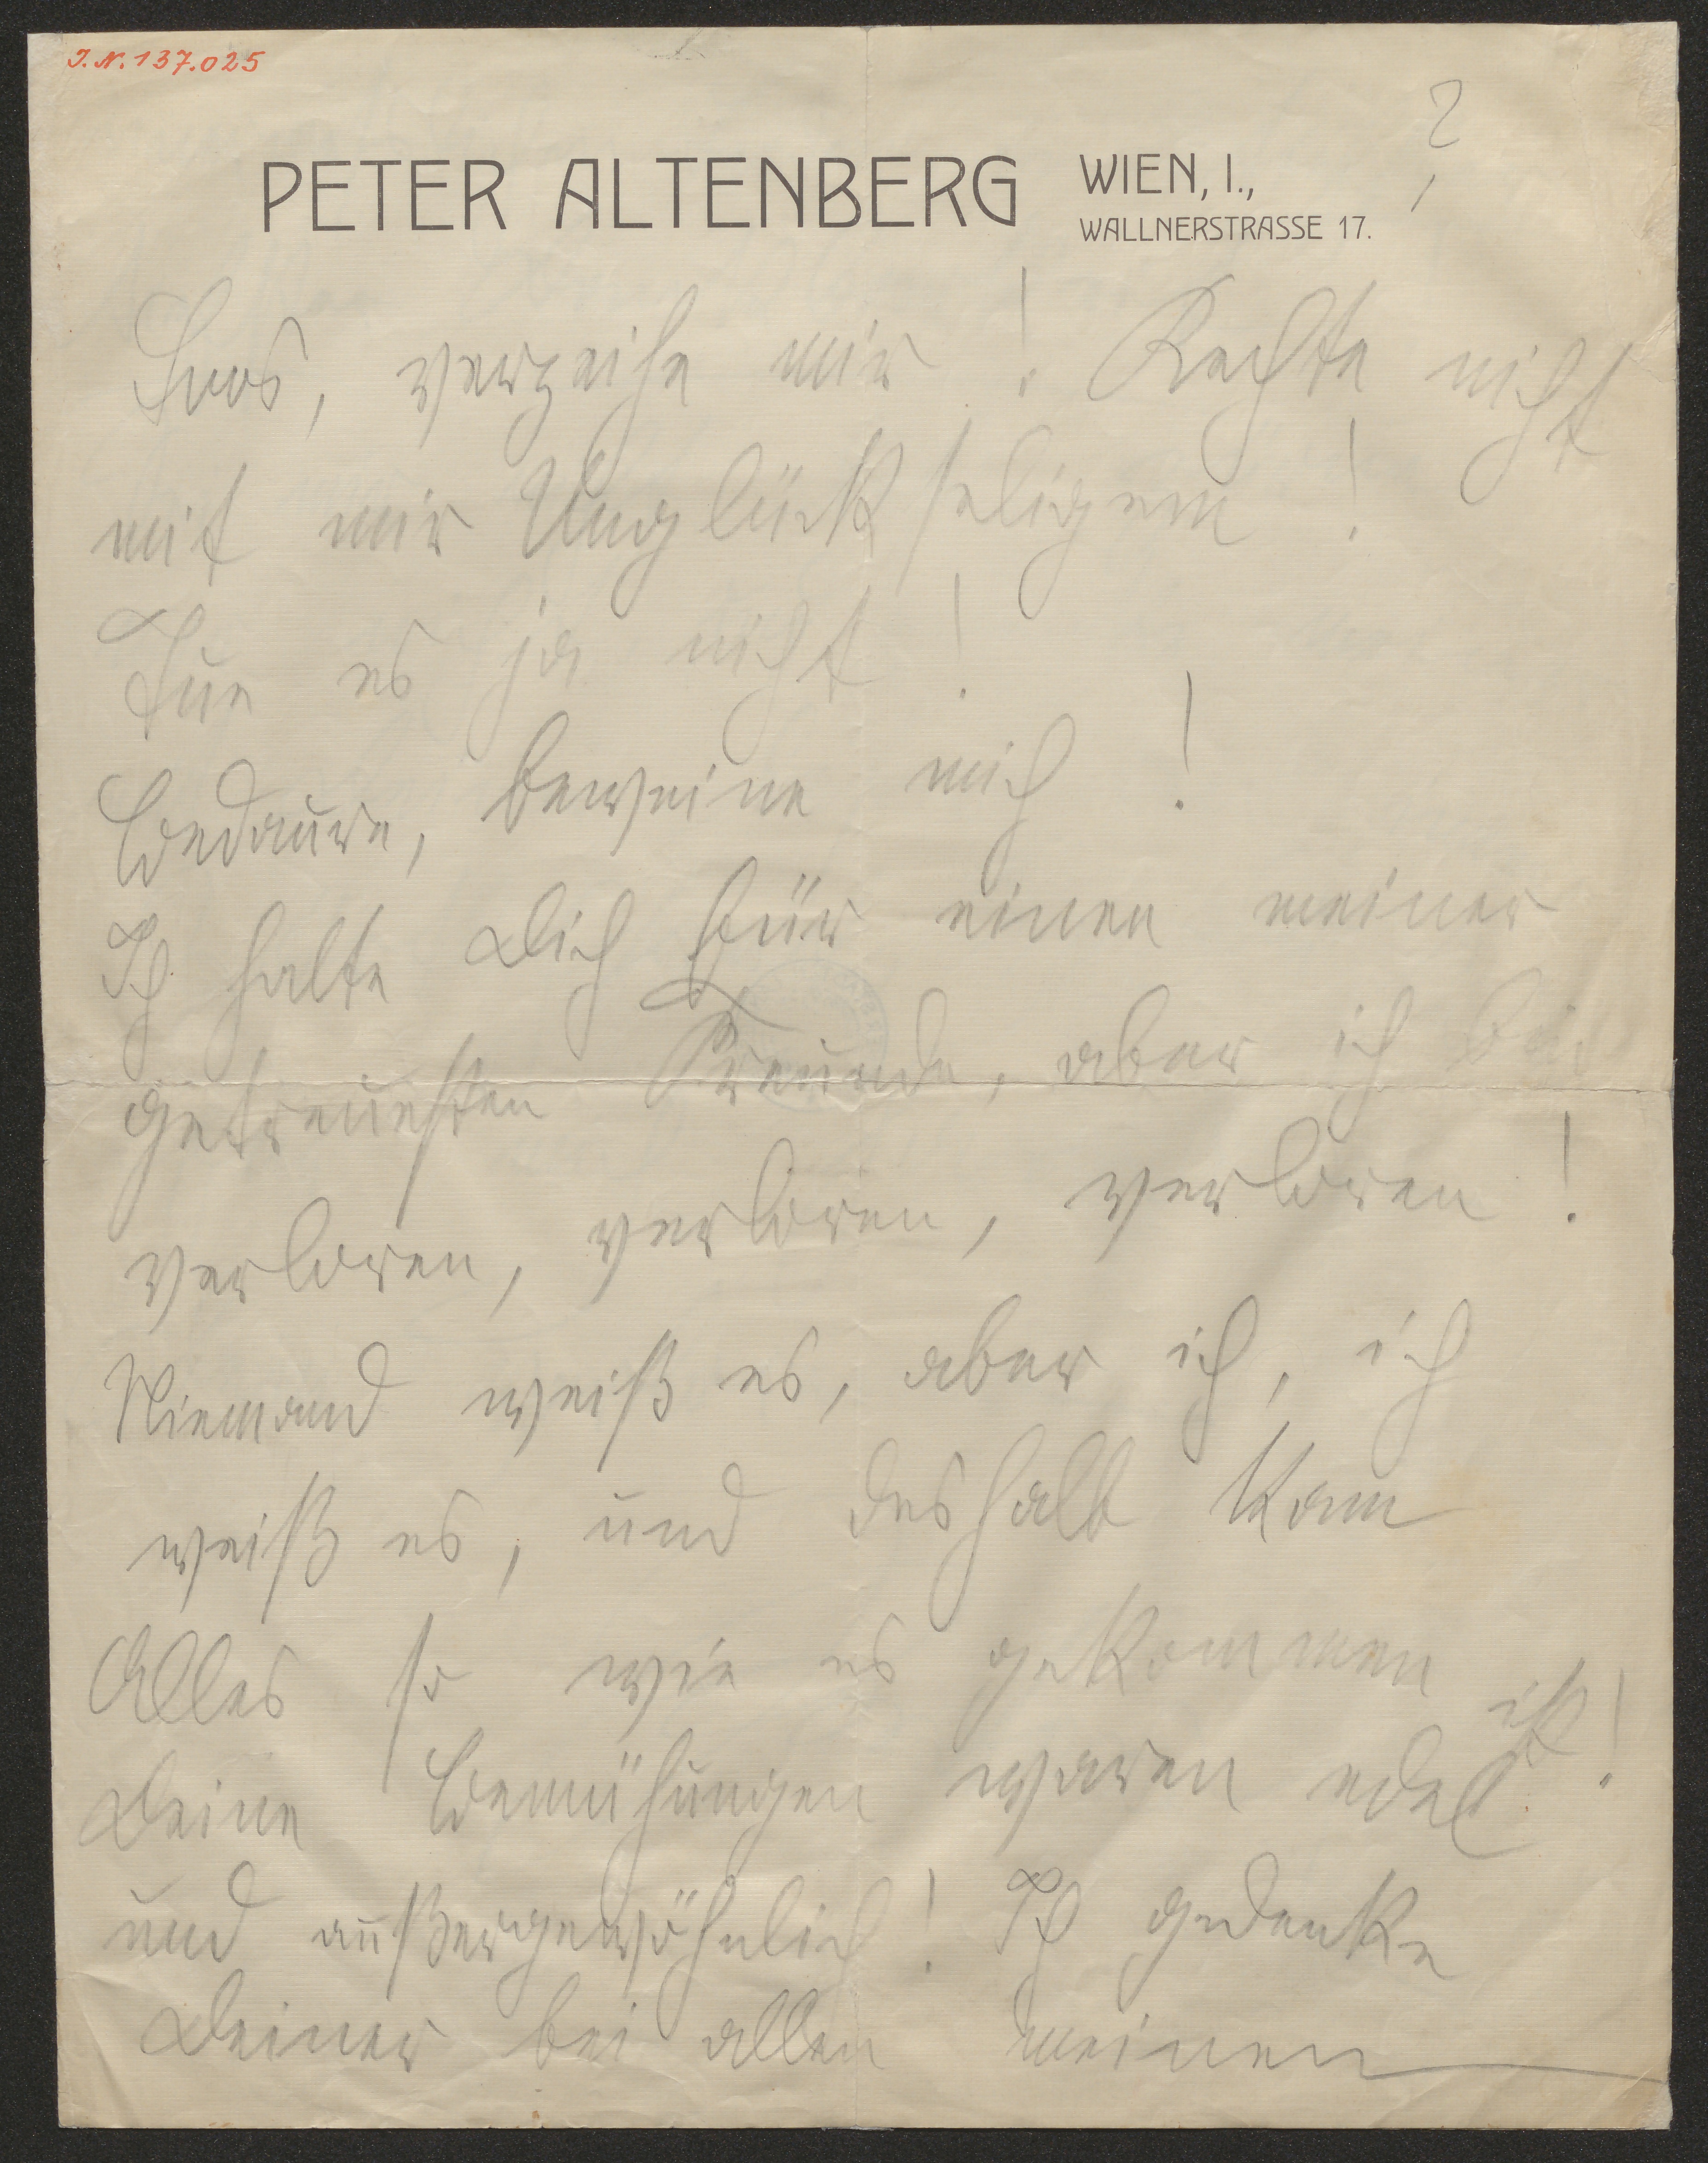 J. N. 137.025
?
PETER ALTENBERG WIEN, I.,
WALLNERSTRASSE 17.
Loos, verzeihe mir! Rechte nicht
mit mir Unglückseligem!
Tue es ja nicht!
Bedaure, beweine mich!
Ich halte Dich für einen meiner
getreuesten Freunde, aber ich bin
verloren, verloren, verloren!
Niemand weiß es, aber ich, ich
weiß es, und deshalb kam
Alles so wie es gekommen ist!
Deine Bemühungen waren edel
und außergewöhnlich! Ich gedenke
Deiner bei allen meinen